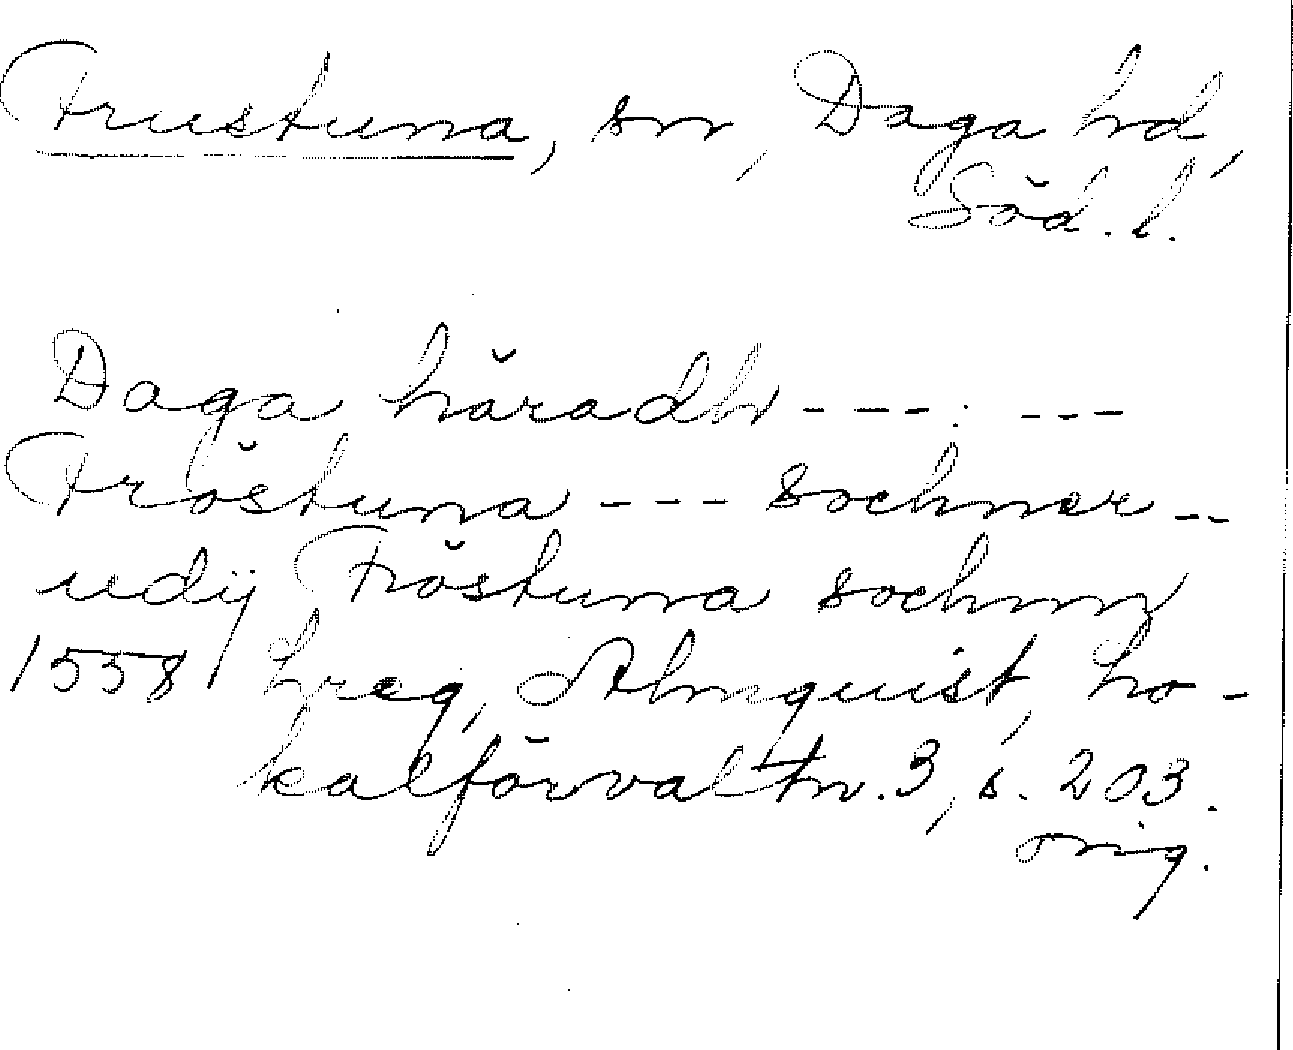 Frustuna, sn, Daga hd,
Söd. l.
Daga häradh --- . ---
Fröstuna --- sochner --
udij Fröstuna sochnn
1558 hreg, Almquist, Lo-
kalförvaltn. 3, s. 203.
orig.